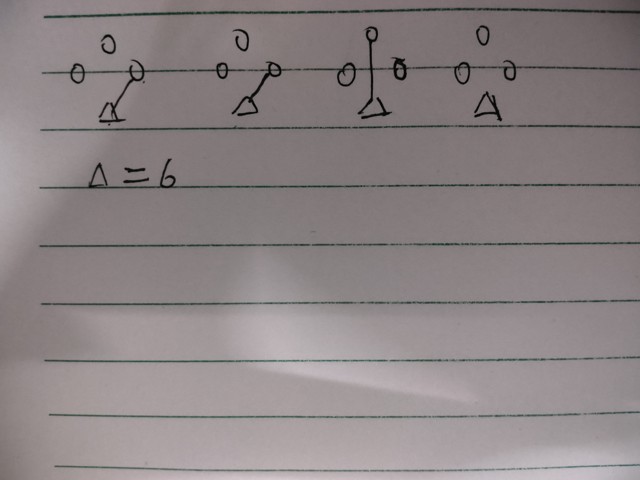 Δ = 6